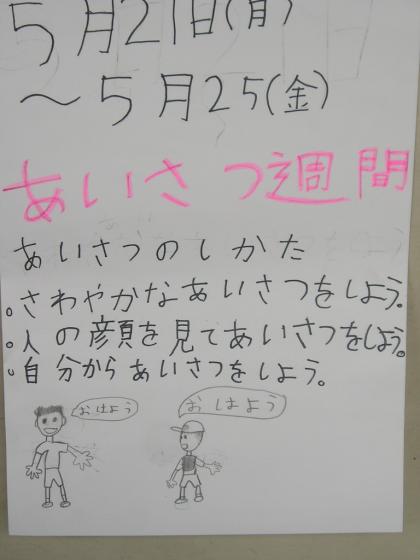 5月21日(月)
〜5月25(金)
あいさつ週間
あいさつのしかた
。さわやかなあいさつをしよう。
。人の顔を見てあいさつをしよう。
。自分からあいさつをしよう。
おはよう
おはよう